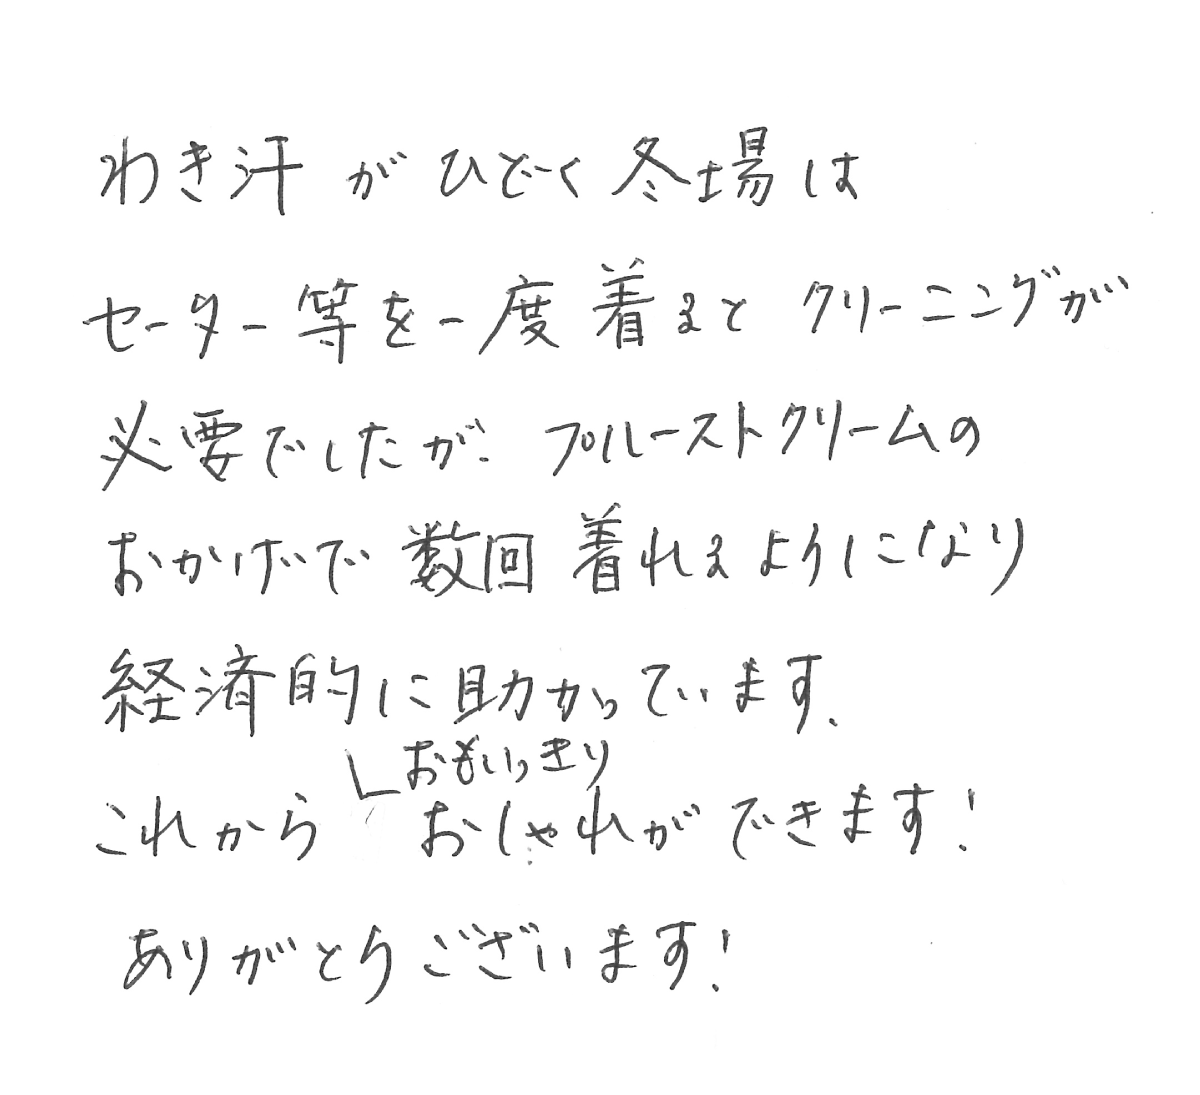 わき汗がひどく冬場は
セーター等を一度着るとクリーニングが
必要でしたが、プルーストクリームの
おかげで数回着れるようになり
経済的に助かっています。
これからおもいっきりおしゃれができます!
ありがとうございます!